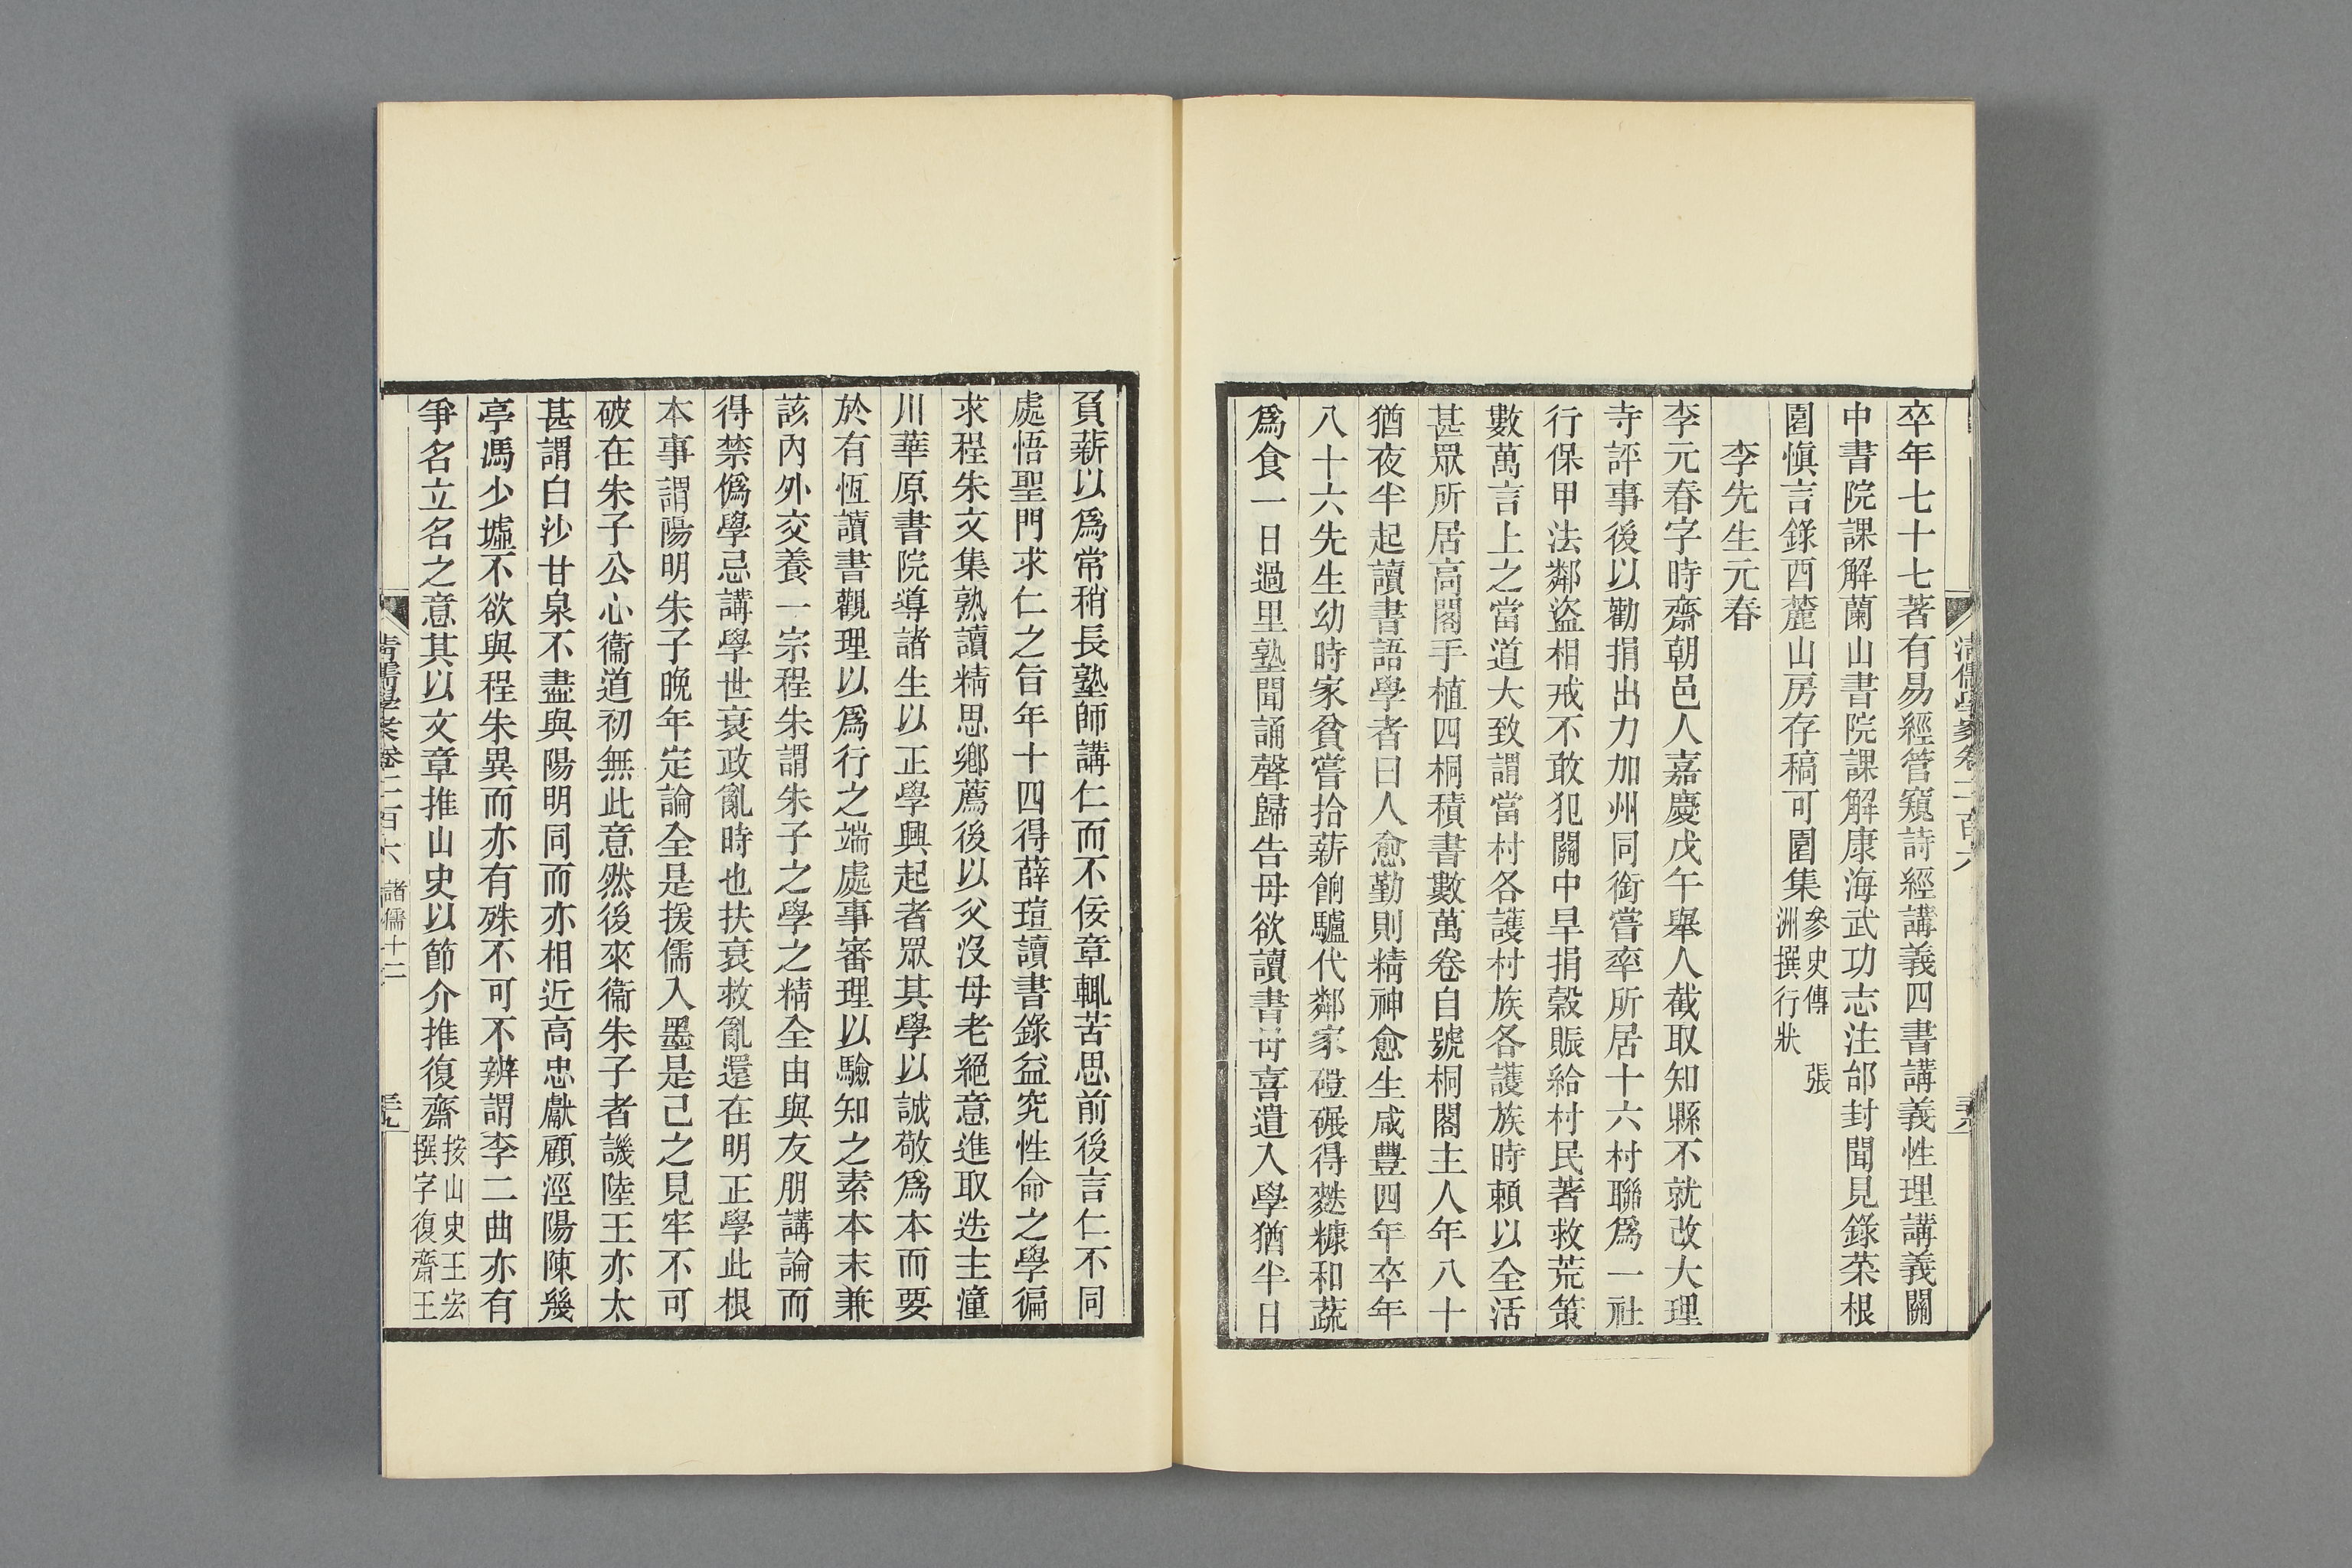 卒年七十七著有易經管窺詩經講義四書講義性理講義關
中書院課解蘭山書院課解康海武功志注邰封聞見錄菜根
園愼言錄酉麓山房存稿可園集參史傳　張
洲撰行狀
李先生元春
李元春字時齋朝邑人嘉慶戊午舉人截取知縣不就改大理
寺評事後以勸捐出力加州同銜嘗率所居十六村聯爲一社
行保甲法鄰盜相戒不敢犯關中旱捐穀賑給村民著救荒策
數萬言上之當道大致謂當村各護村族各護族時賴以全活
甚眾所居高閣手植四桐積書數萬卷自號桐閣主人年八十
猶夜半起讀書語學者曰人愈勤則精神愈生咸豐四年卒年
八十六先生幼時家貧嘗拾薪餉驢代鄰家磑碾得麩糠和蔬
爲食一日過里塾聞誦聲歸告母欲讀書母喜遣入學猶半日
清儒學案卷二百六
負薪以爲常稍長塾師講仁而不佞章輒苦思前後言仁不同
處悟聖門求仁之旨年十四得薛瑄讀書錄益究性命之學徧
求程朱文集熟讀精思鄉薦後以父沒母老絕意進取迭主潼
川華原書院導諸生以正學興起者眾其學以誠敬爲本而要
於有恆讀書觀理以爲行之端處事審理以驗知之素本末兼
該內外交養一宗程朱謂朱子之學之精全由與友朋講論而
得禁僞學忌講學世衰政亂時也扶衰救亂還在明正學此根
本事謂陽明朱子晚年定論全是援儒入墨是己之見牢不可
破在朱子公心衞道初無此意然後來衞朱子者譏陸王亦太
甚謂白沙甘泉不盡與陽明同而亦相近高忠獻顧涇陽陳幾
亭馮少墟不欲與程朱異而亦有殊不可不辨謂李二曲亦有
爭名立名之意其以文章推山史以節介推復齋按山史王宏
撰字復齋王
清儒學案卷二百六　諸儒十二